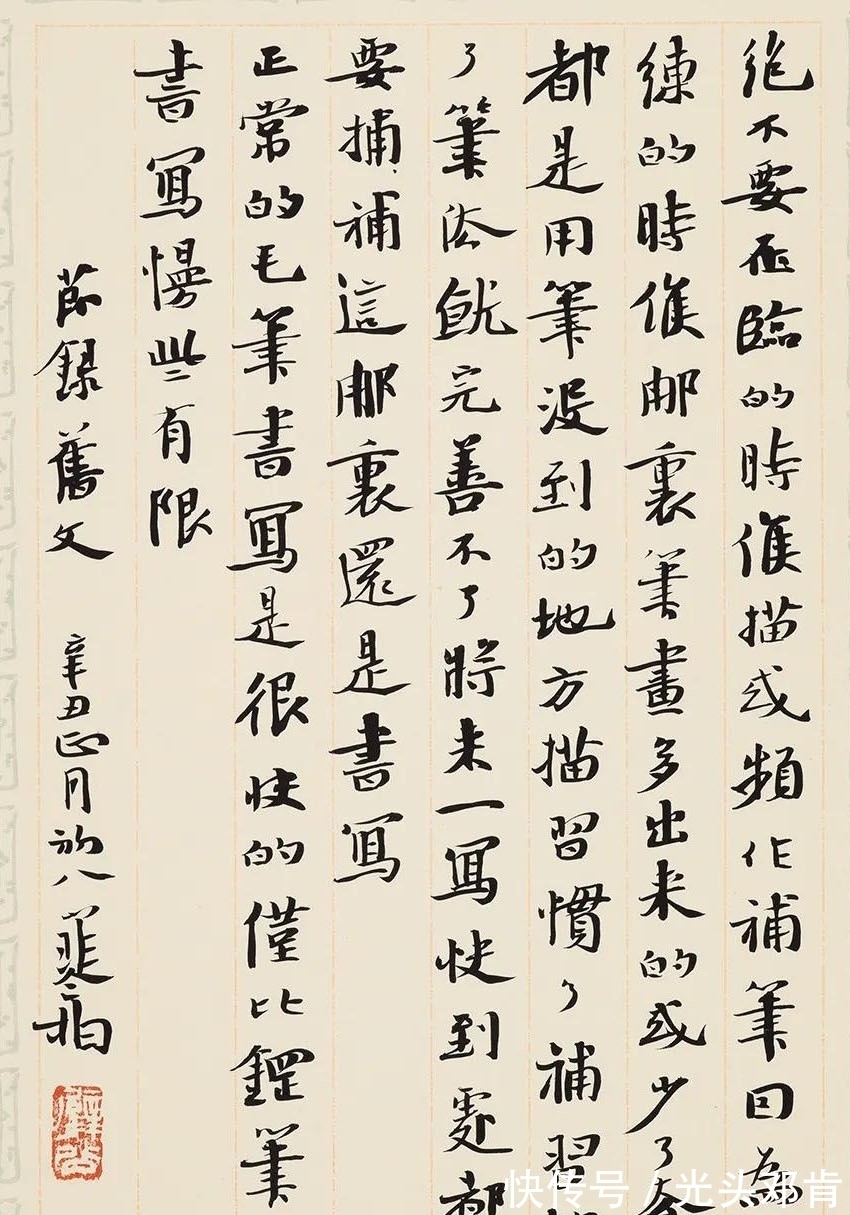 絕不要在臨的時候描或頻作補筆因為
練的時候那裏筆畫多出來的或少了
都是用筆没到的地方描習慣了補習
了筆法就完善不了將来一寫快到處都
要捕補這那裏還是書寫
正常的毛筆書寫是很快的僅比鋼筆
書寫慢些有限
節録舊文 辛丑正月初八
快传号 / 光头邓肯